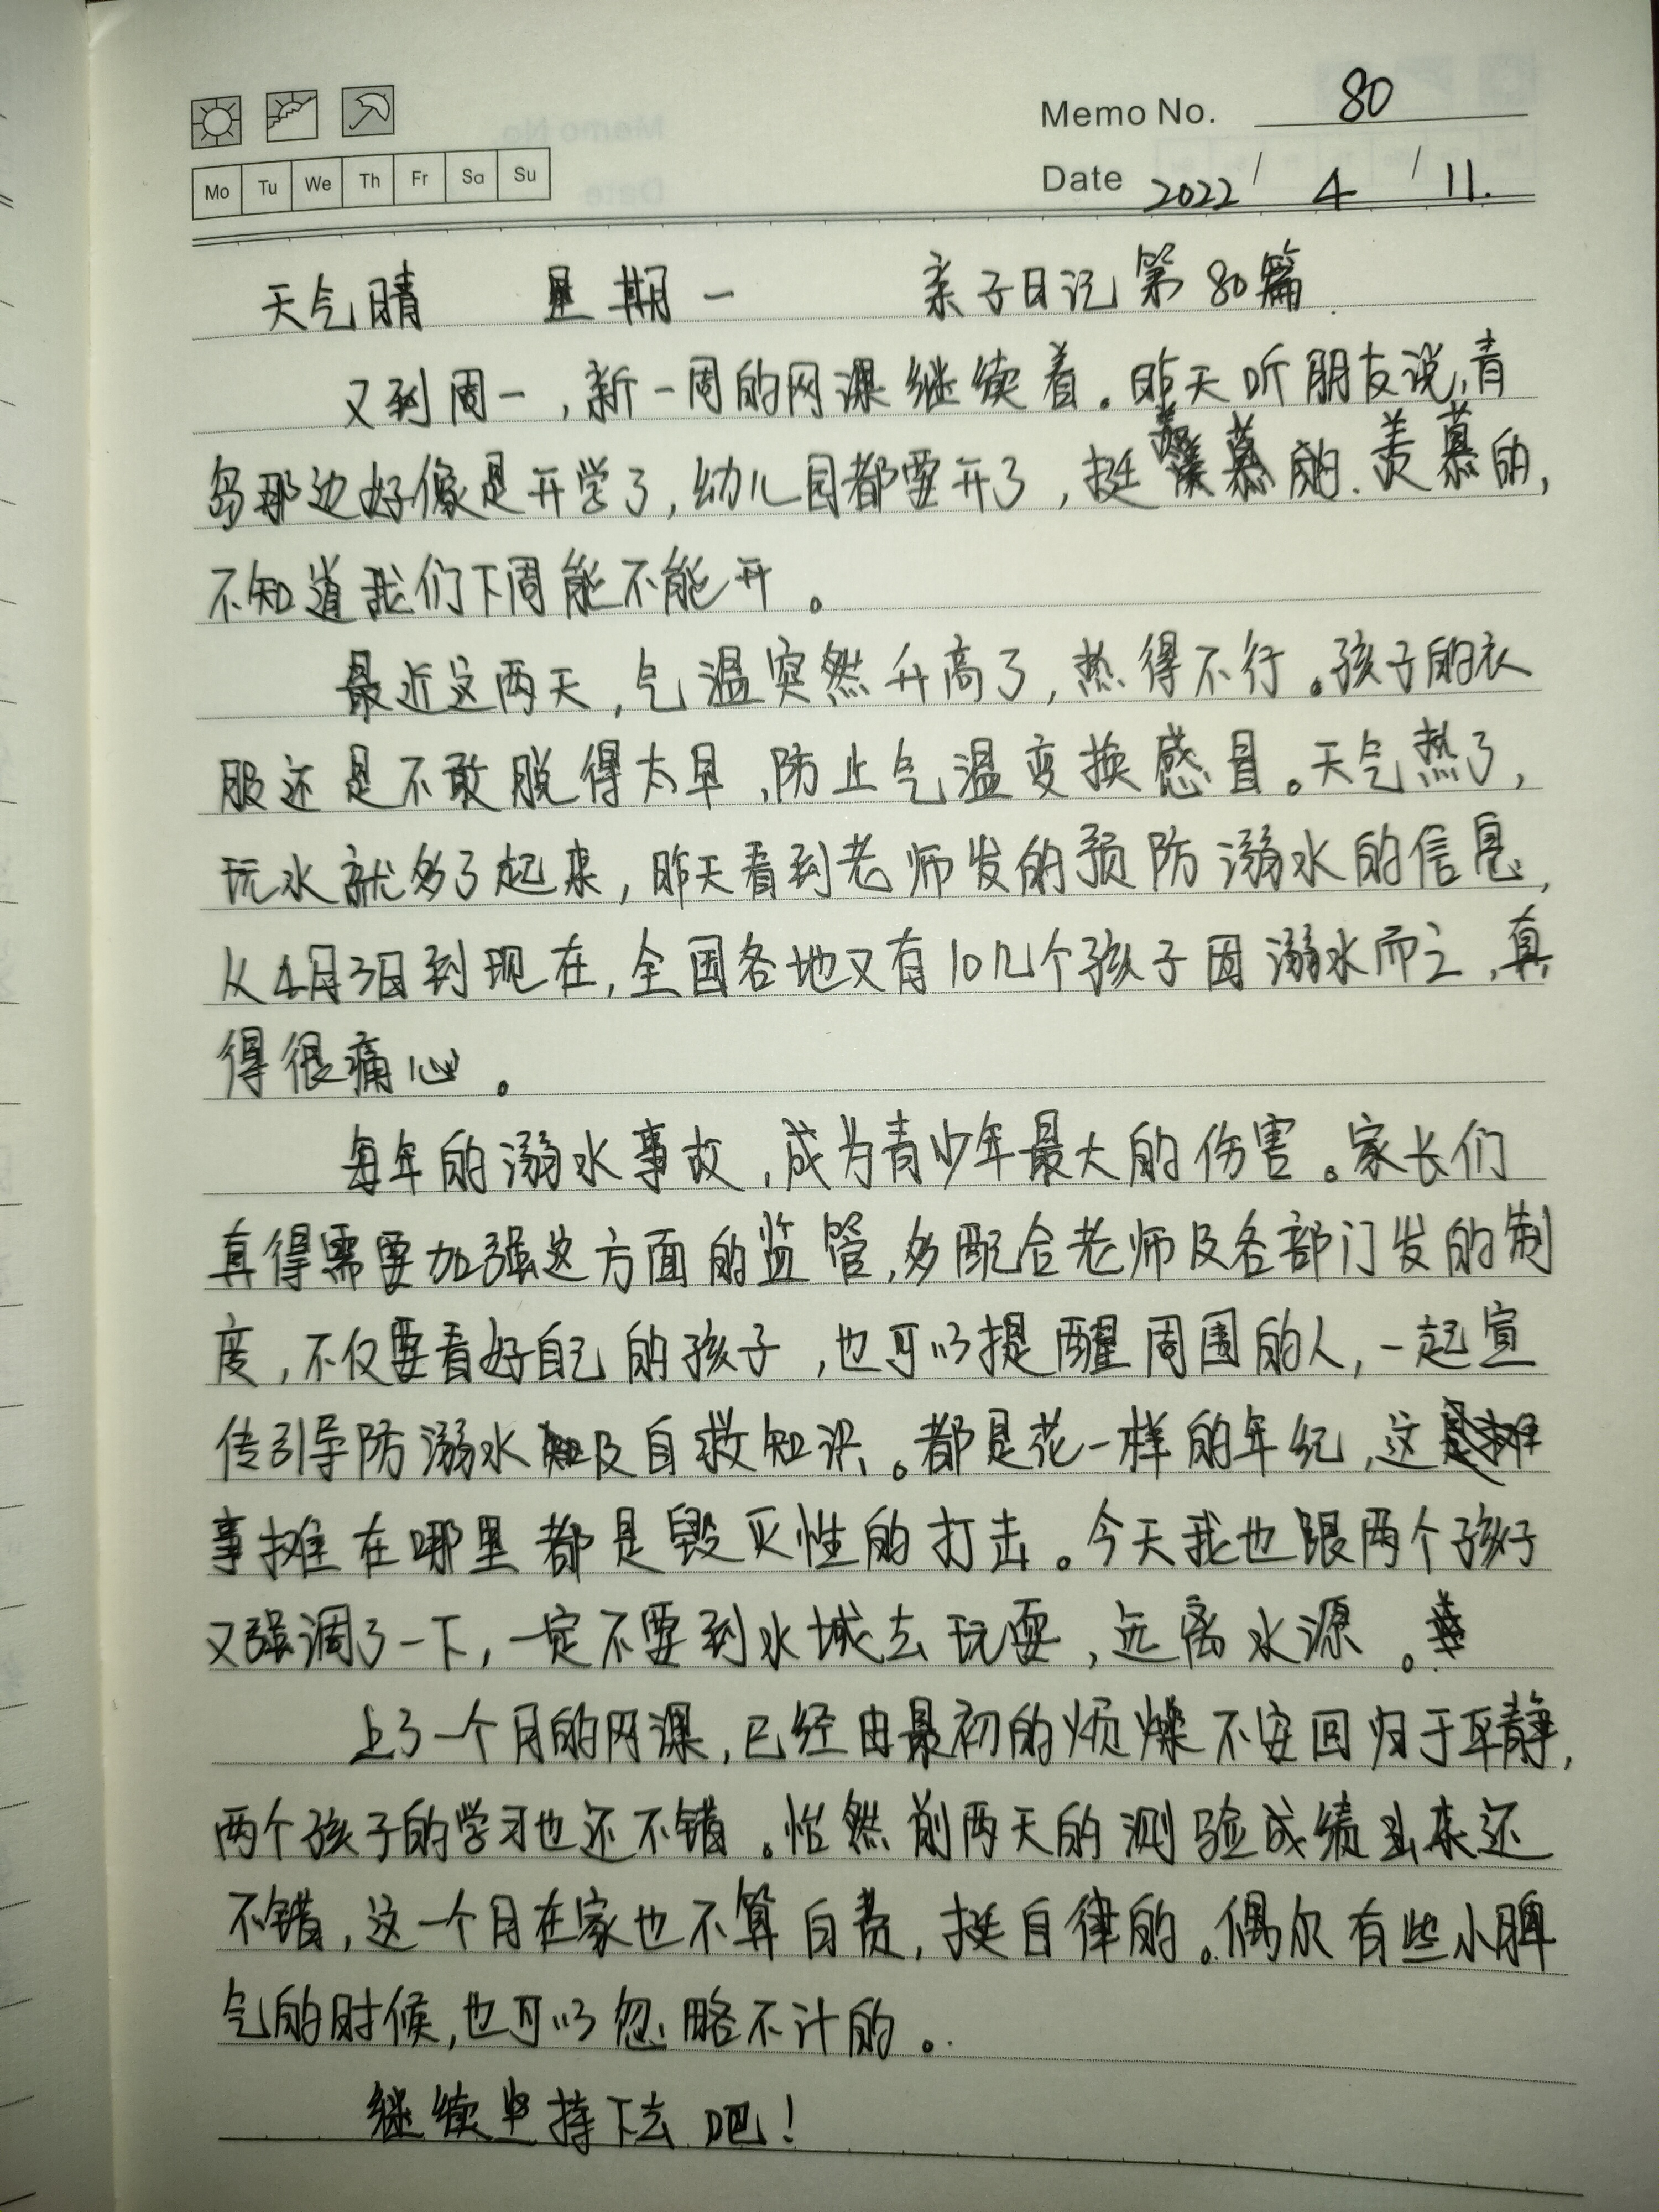 Memo No. 80
Mo Tu We Th Fr Sa Su
Date 2022 / 4 / 11.
天气晴 星期一 亲子日记第80篇.
又到周一,新一周的网课继续着。昨天听朋友说,青
岛那边好像是开学了,幼儿园都要开了,挺羡慕的.羡慕的,
不知道我们下周能不能开。
最近这两天,气温突然升高了,热得不行。孩子的衣
服还是不敢脱得太早,防止气温变换感冒。天气热了,
玩水就多了起来,昨天看到老师发的预防溺水的信息,
从4月3日到现在,全国各地又有10几个孩子因溺水而亡,真
得很痛心。
每年的溺水事故,成为青少年最大的伤害。家长们
真得需要加强这方面的监管,多配合老师及各部门发的制
度,不仅要看好自己的孩子,也可以提醒周围的人,一起宣
传引导防溺水及自救知识。都是花一样的年纪,这
事摊在哪里都是毁灭性的打击。今天我也跟两个孩子
又强调了一下,一定不要到水域去玩耍,远离水源。
上了一个月的网课,已经由最初的烦燥不安回归于平静,
两个孩子的学习也还不错。怡然前两天的测验成绩出来还
不错,这一个月在家也不算白费,挺自律的。偶尔有些小脾
气的时候,也可以忽略不计的。
继续坚持下去吧!